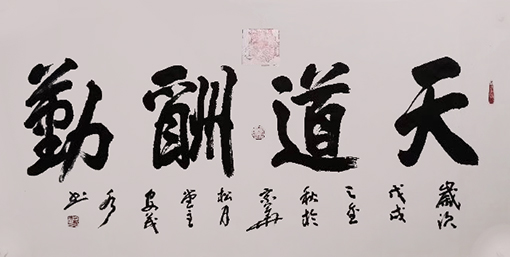 天道酬勤
歲次戊戌之金秋於京華松月堂主